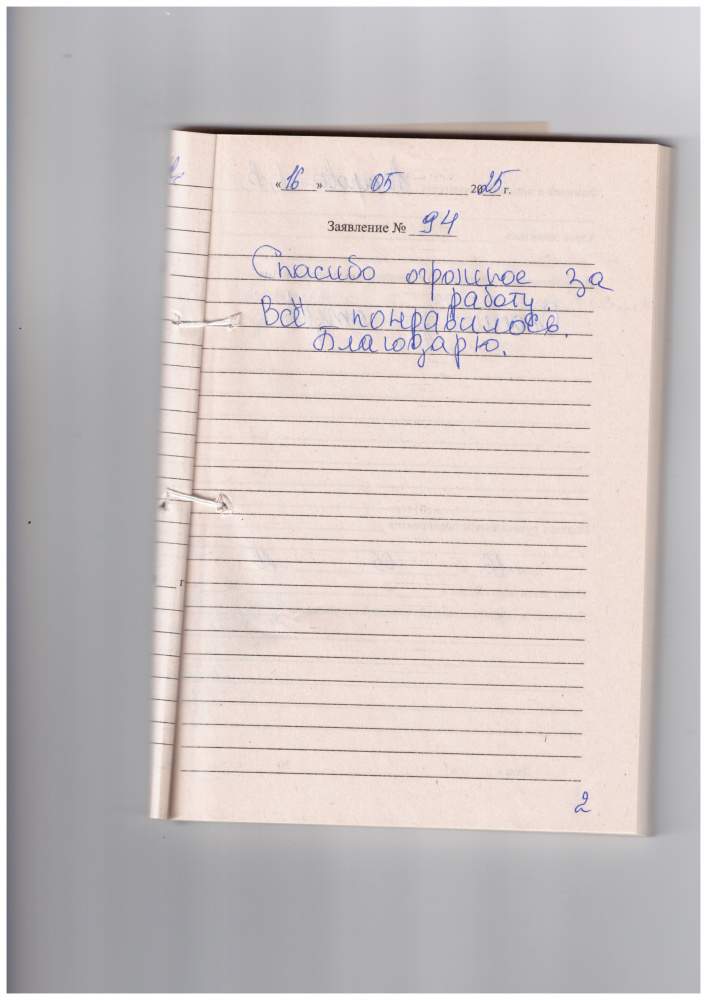 «16» 05 2025 г.
Заявление № 94
Спасибо огромное за
работу.
Всё понравилось.
Благодарю.
г
2